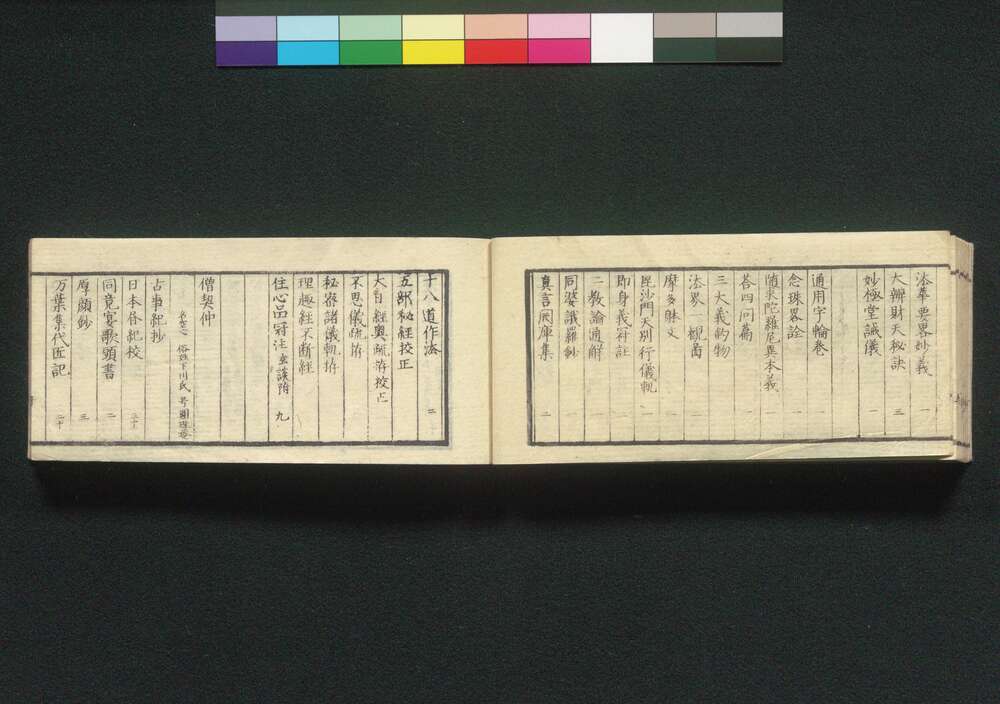 法華要畧鈔義 一
大辨財天秘訣 三
妙極堂誡儀 一
通用字輪卷 一
念珠畧詮 一
随求陀羅尼異本義
答四问篇 一
三大義的物 一
法界一覩啚 一
摩多躰文 一
毘沙門天別行儀軌 一
即身義符註 一
二教論通解 一
同婆誐羅鈔 一
真言園庫集 二
十八道作法 二
五部秘経校正
大日経奥疏拼校正
不思儀疏拼
秘密諸儀軌拼
理趣経不断經
住心品冠注 玄談附 九
僧契仲
俗姓下川氏 号圓珠菴
古事紀抄
日本各紀校 三十
同竟宴歌頭書 二
厚顔鈔 三
万葉集代匠記 二十